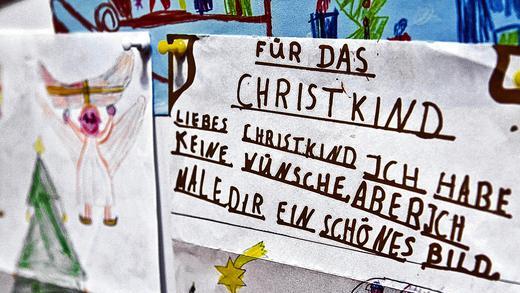 FÜR DAS
CHRISTKIND
LIEBES CHRISTKIND ICH HABE
KEINE WÜNSCHE, ABER ICH
MALE DIR EIN SCHÖNES BILD.